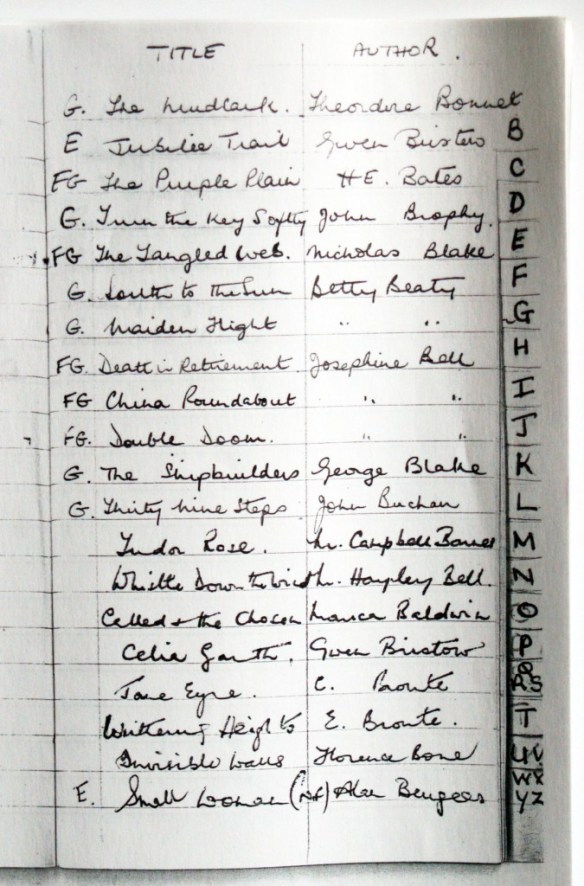 TITLE AUTHOR.
G. The Mudlark. Theodore Bonnet
E Jubilee Trail Gwen Bristow
FG The Purple Plain H E. Bates
G. Turn the Key Softly John Brophy.
FG The Tangled Web. Nicholas Blake
G. South to the Sun Betty Beaty
G. Maiden Flight " "
FG. Death in Retirement Josephine Bell
FG China Roundabout " "
FG. Double Doom. " "
G. The Shipbuilders George Blake
G. Thirty nine Steps John Buchan
Tudor Rose. M. Campbell Barnes
Whistle Down the Wind M. Hayley Bell.
Called & the Chosen Monica Baldwin
Celia Garth. Gwen Bristow
Jane Eyre. C. Bronte
Wuthering Heights E. Bronte.
Invisible Walls Florence Bone
E. Small Woman (NF) Alan Burgess
B
C
D
E
F
G
H
I
J
K
L
M
N
O
P
Q
R S
T
U V
W X
Y Z